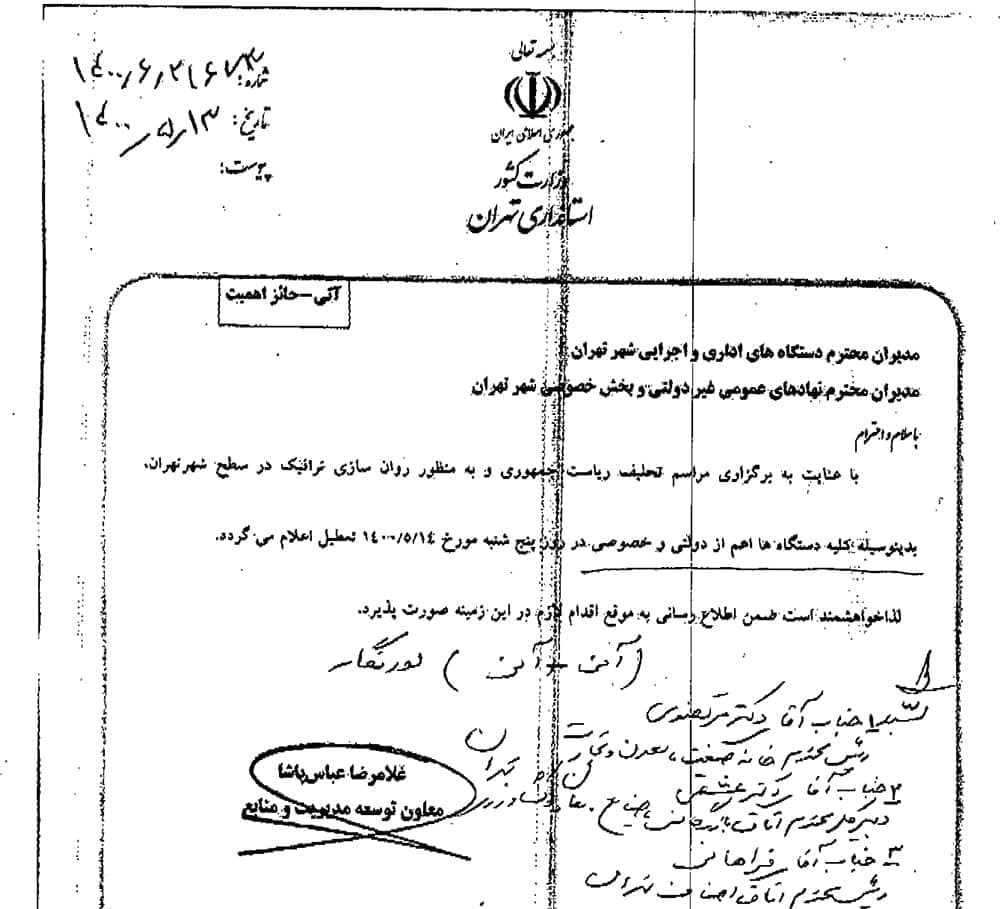 بسمه تعالی
جمهوری اسلامی ایران
وزارت کشور
استانداری تهران
شماره:
تاریخ: ۱۴۰۰/۵/۱۳
پیوست:
آنی-حائز اهمیت
مدیران محترم دستگاه های اداری و اجرایی شهر تهران
مدیران محترم نهادهای عمومی غیر دولتی و بخش خصوصی شهر تهران
باسلام و احترام
با عنایت به برگزاری مراسم تحلیف ریاست جمهوری و به منظور روان سازی ترافیک در سطح شهرتهران،
بدینوسیله کلیه دستگاه ها اعم از دولتی و خصوصی در روز پنج شنبه مورخ ۱۴۰۰/۵/۱۴ تعطیل اعلام می گردد.
لذاخواهشمند است ضمن اطلاع رسانی به موقع اقدام لازم در این زمینه صورت پذیرد.
(آنی - آنی) دورنگار
۱ جناب آقای دکتر
رئیس محترم خانه صنعت، معدن و تجارت
۲ جناب آقای دکتر
دبیرکل محترم اتاق بازرگانی، صنایع، معادن و کشاورزی تهران
۳ جناب آقای فراهانی
رئیس محترم اتاق اصناف تهران
غلامرضا عباس پاشا
معاون توسعه مدیریت و منابع